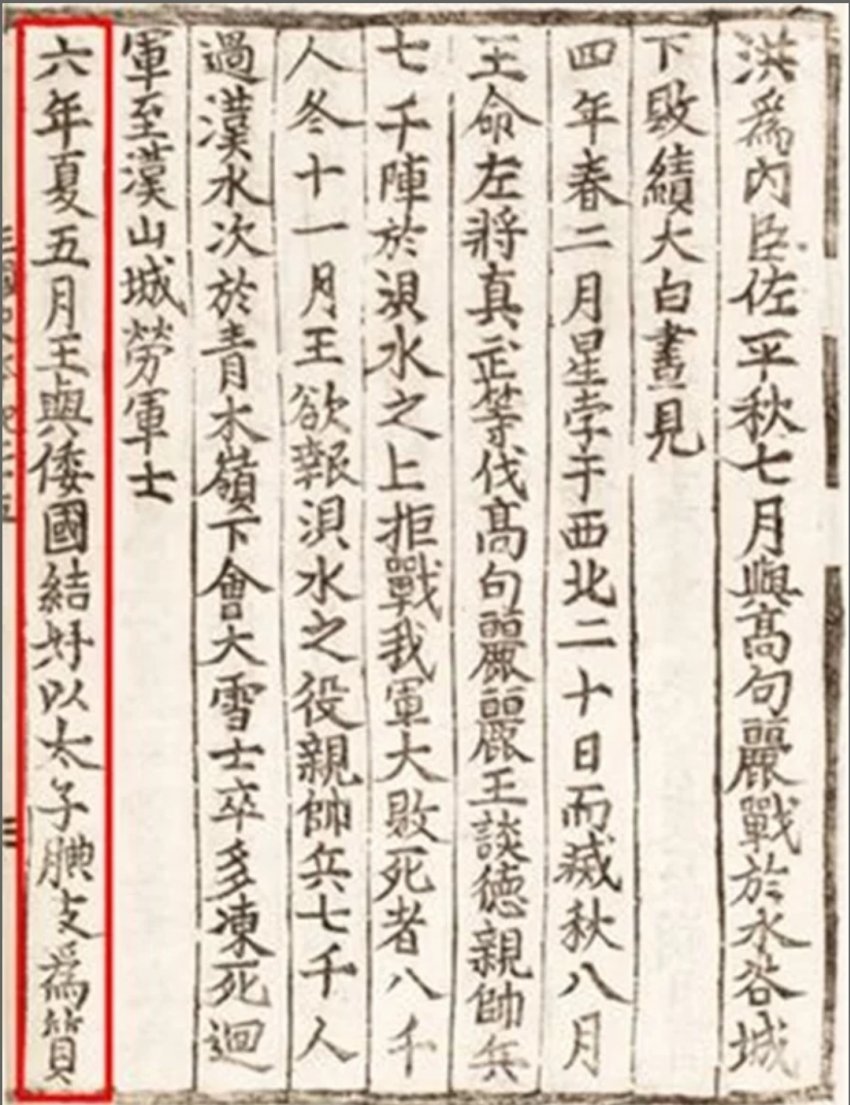 洪爲内臣佐平秋七月與髙句麗戰於水谷城
下敗績大白晝見
四年春二月星孛于西北二十日而滅秋八月
王命左將真武等伐髙句麗麗王談德親帥兵
七千陣於浿水之上拒戰我軍大敗死者八千
人冬十一月王欲報浿水之役親帥兵七千人
過漢水次於青木嶺下會大雪士卒多凍死迴
軍至漢山城勞軍士
六年夏五月王與倭國結好以太子腆支爲質